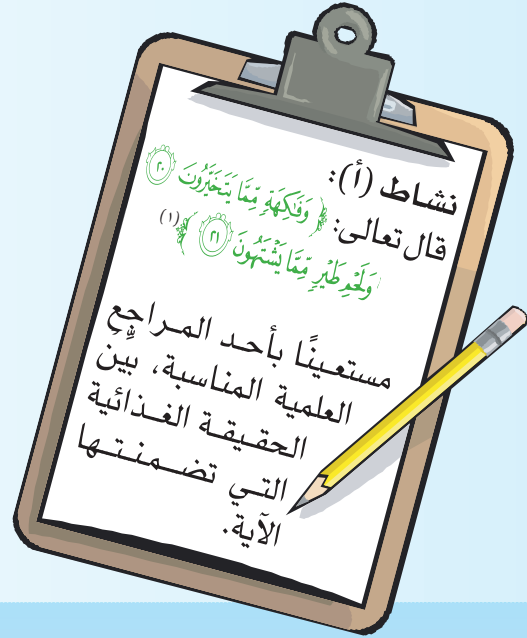 نشاط (أ):
قال تعالى: ﴿ وَفَٰكِهَةٍ مِّمَّا يَتَخَيَّرُونَ ٢٠
وَلَحْمِ طَيْرٍ مِّمَّا يَشْتَهُونَ ٢١ ﴾ (١)
مستعينًا بأحد المراجع
العلمية المناسبة، بيِّن
الحقيقة الغذائية
التي تضمنتها
الآية.